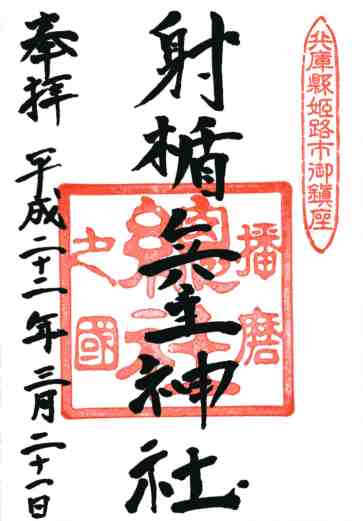 兵庫縣姫路市御鎮座
射楯兵主神社
播磨
總社
之國
奉拝
平成二十二年三月二十一日